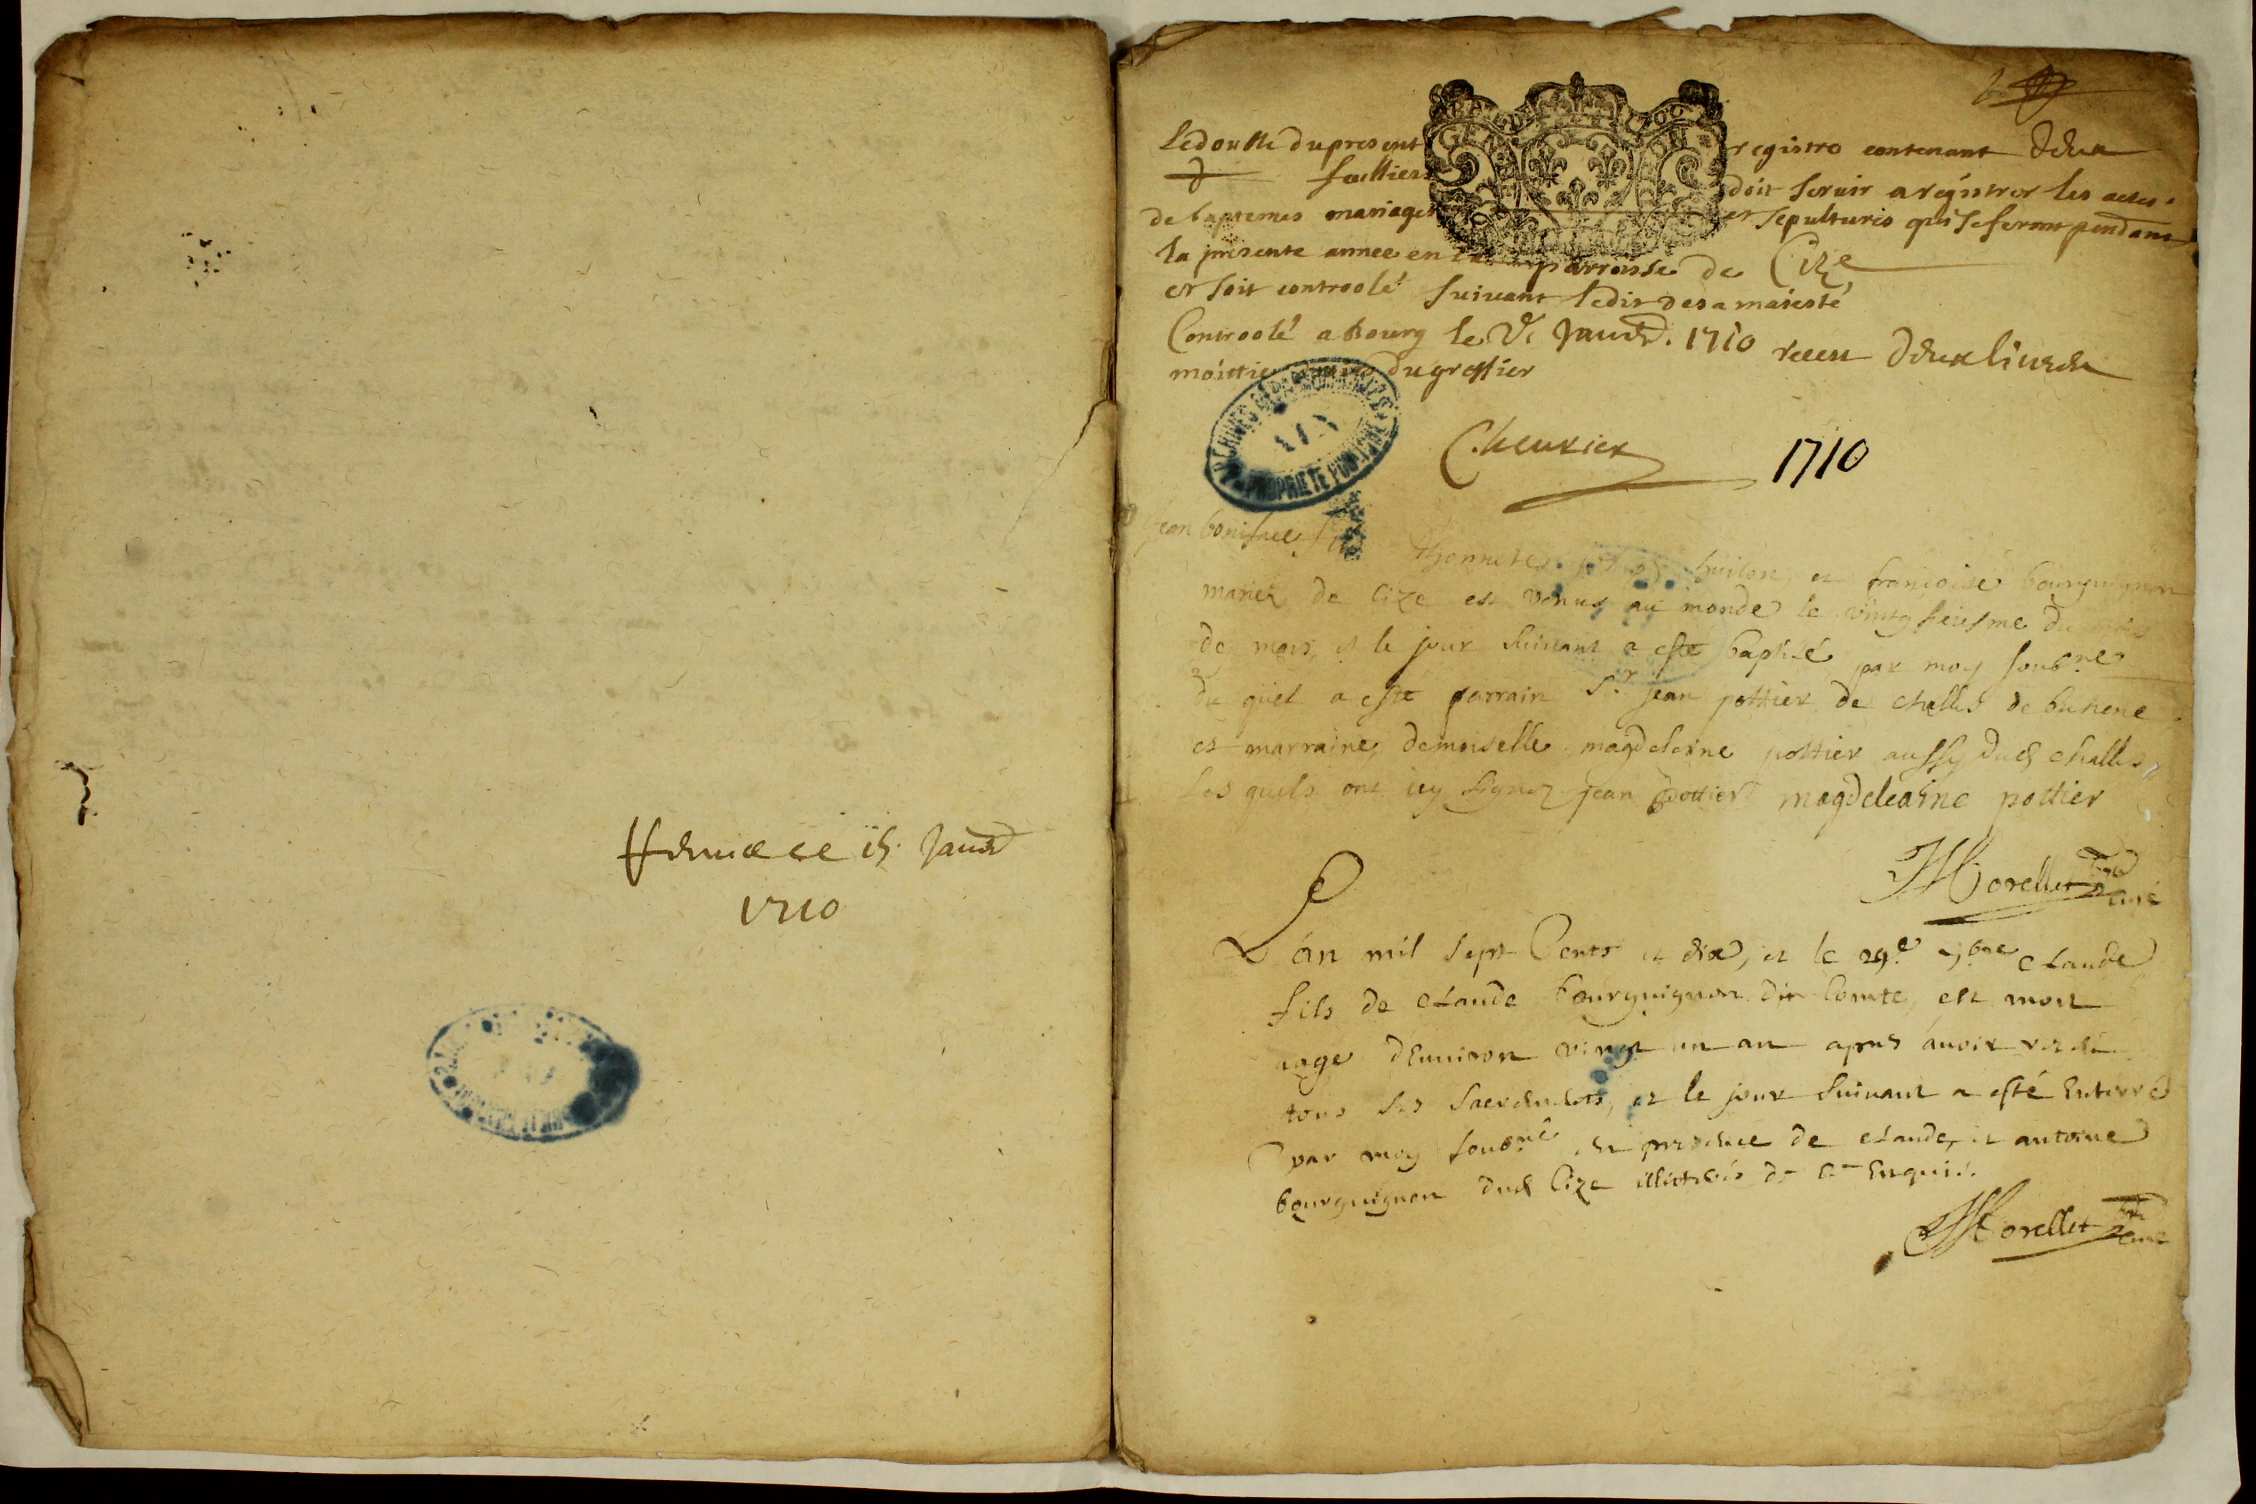 ce 15. Janvr
1710
GEN
1700
Le double du present registre contenant deux
feulliers doit servir a registrer les actes
de baptemes mariages et sepultures qui se feront pendant
la presente annee en la parroisse de Cize
et soit controolé suivant ledit de sa majesté
Controolé a Bourg le Janvr. 1710 receu deux livres
moittie du greffier
ARCHINES
PROPRIETE PUBLIQUE
Cheurier 1710
Jean boniface fils honneste huilon et françoise bourguignon
mariez de Cize est venus au monde le vingt
de mars et le jour suivant a esté baptisé par moy soubne
du quel a esté parrain Sr jean pottier de challes de buhene
et marraine demoiselle magdeleine pottier aussy dud challes
Les quels ont icy signez jean pottier magdeleaine pottier
Morellet curé
L'an mil sept Cents et dix, et le 29e claude
fils de claude bourguignon dit Comte, est mort
aage d'environ vingt un an apres avoir receu
tous ses sacrements, et le jour suivant a esté enterré
par moy soubne en presence de claude, et antoine
bourguignon dud Cize illittrés de ce enquis.
Morellet curé